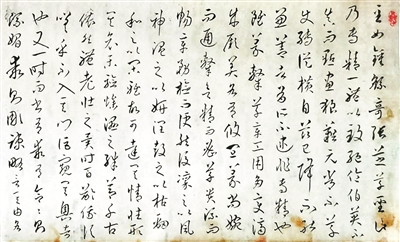 至如鍾繇隸奇張芝草聖此
乃專精一體以致絕倫伯英不
真而點畫狼藉元常不草
使轉縱橫自茲已降不能
兼善者有所不逮非專精也
雖篆隸草章工用多變濟
成厥美各有攸宜篆尚婉
而通隸欲精而密草貴流而
暢章務檢而便然後凜之以風
神溫之以妍潤鼓之以枯勁
和之以閑雅故可達其情性形
其哀樂驗燥濕之殊節千古
依然體老壯之異時百齡俄頃
嗟乎不入其門詎窺其奧者
也又一時而書有乖有合合則
流媚乖則彫疎略言其由各